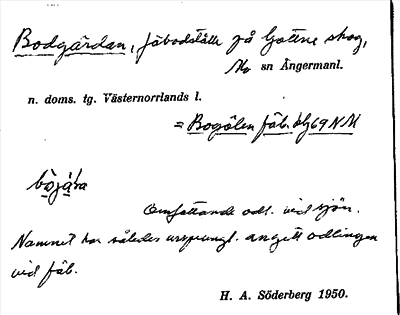 Bodgärdan, fäbodställe på Gottne skog,
Mo sn Ångermanl.
n. doms. tg. Västernorrlands l.
= Bogölen fäb. 69 NM
böjäla
Omfattande odl. vid sjön.
Namnet har således urspungl. angett odlingen
vid fäb.
H. A. Söderberg 1950.